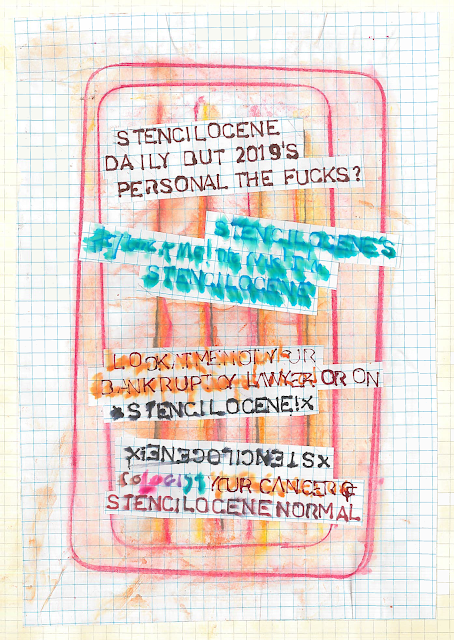 STENCILOCENE
DAILY BUT 2019'S
PERSONAL THE FUCKS?
STENCILOCENE'S
STENCILOCENE
LOOK AT ME NOT YOUR
BANKRUPTCY LAWYER OR ON
STENCILOCENE!X
XSTENCILOCENE!X
YOUR CANCER
STENCILOCENE NORMAL